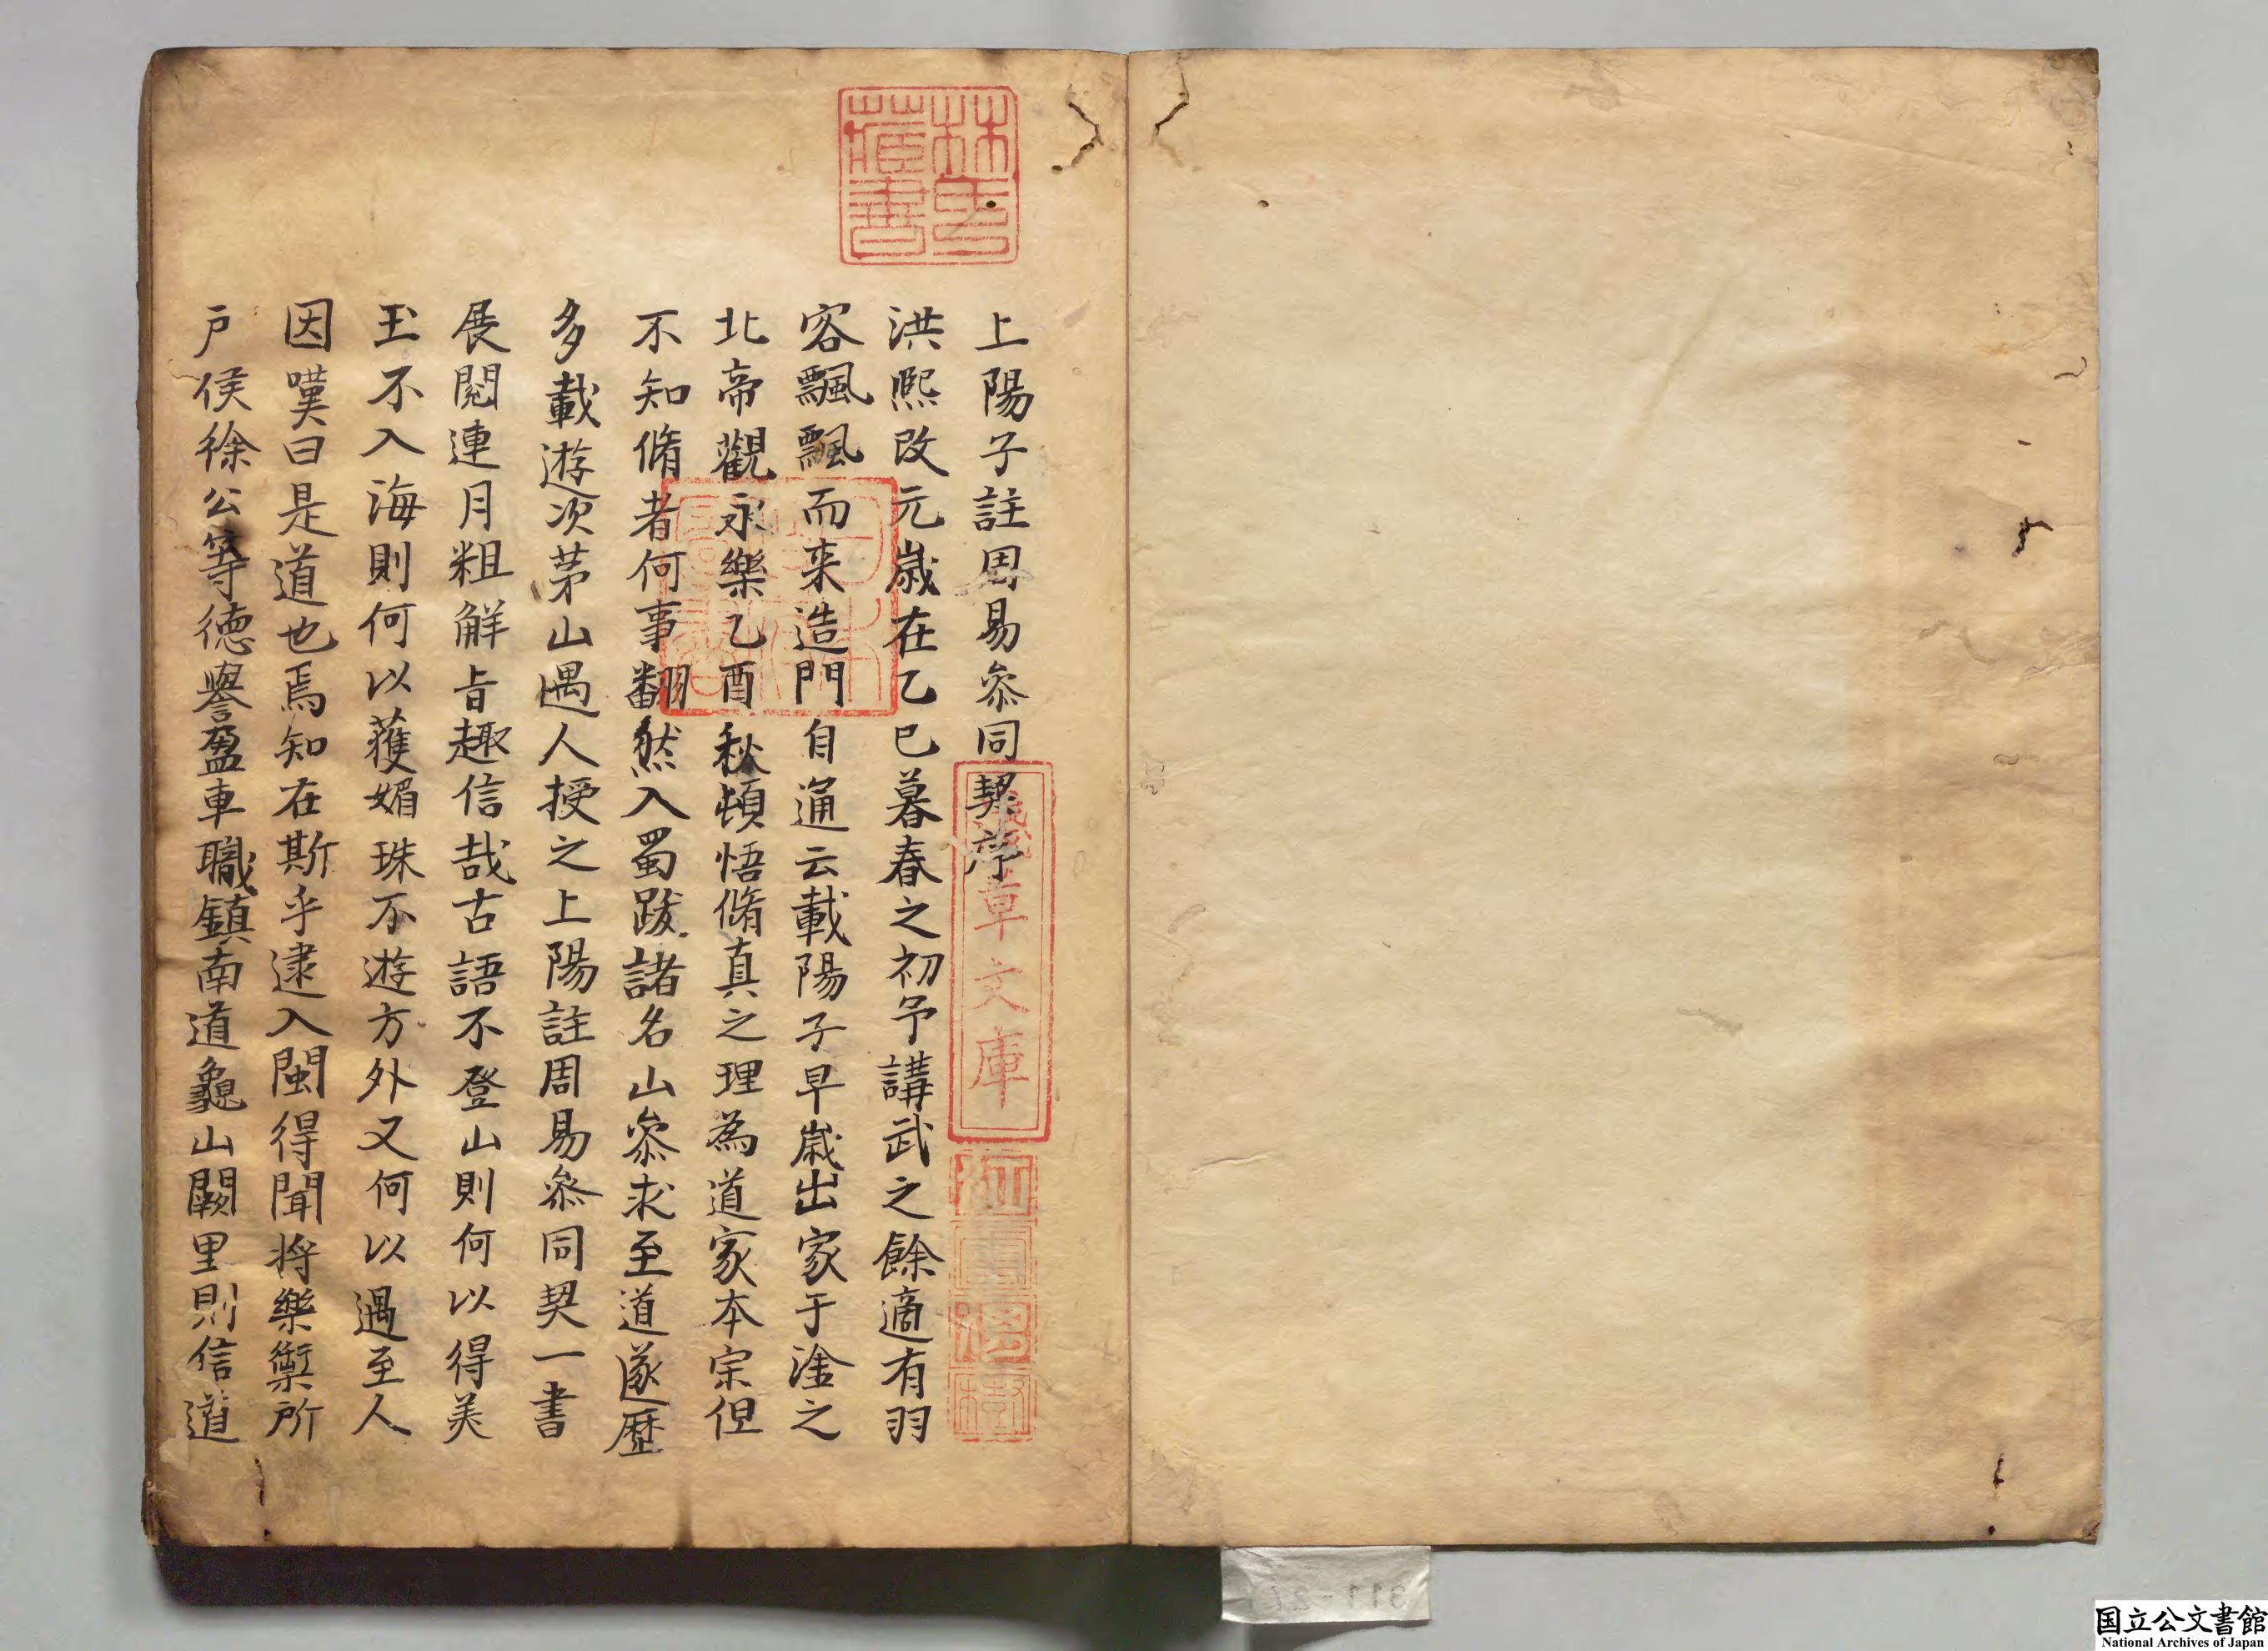 上陽子註周易叅同契序
洪熈改元歳在乙巳暮春之初予講武之餘適有羽
客飄飄而来造門自通云載陽子早歳出家于淦之
北帝觀永樂乙酉秋頓悟脩真之理為道家本宗但
不知脩者何事翻然入蜀跋諸名山叅求至道遂歷
多載遊次茅山遇人授之上陽註周易叅同契一書
展閱連月粗解旨趣信哉古語不登山則何以得美
玉不入海則何以獲媚珠不遊方外又何以遇至人
因嘆曰是道也焉知在斯乎逮入閩得聞将樂禦所
戶侯徐公等德譽盈車職鎮南道龜山闕里則信道
林氏
藏書
淺草文庫
江雲渭樹
311-2
国立公文書館
National Archives of Japan